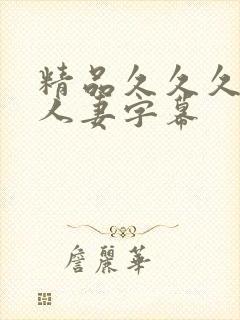 精品久久久
人妻字幕
詹麗華